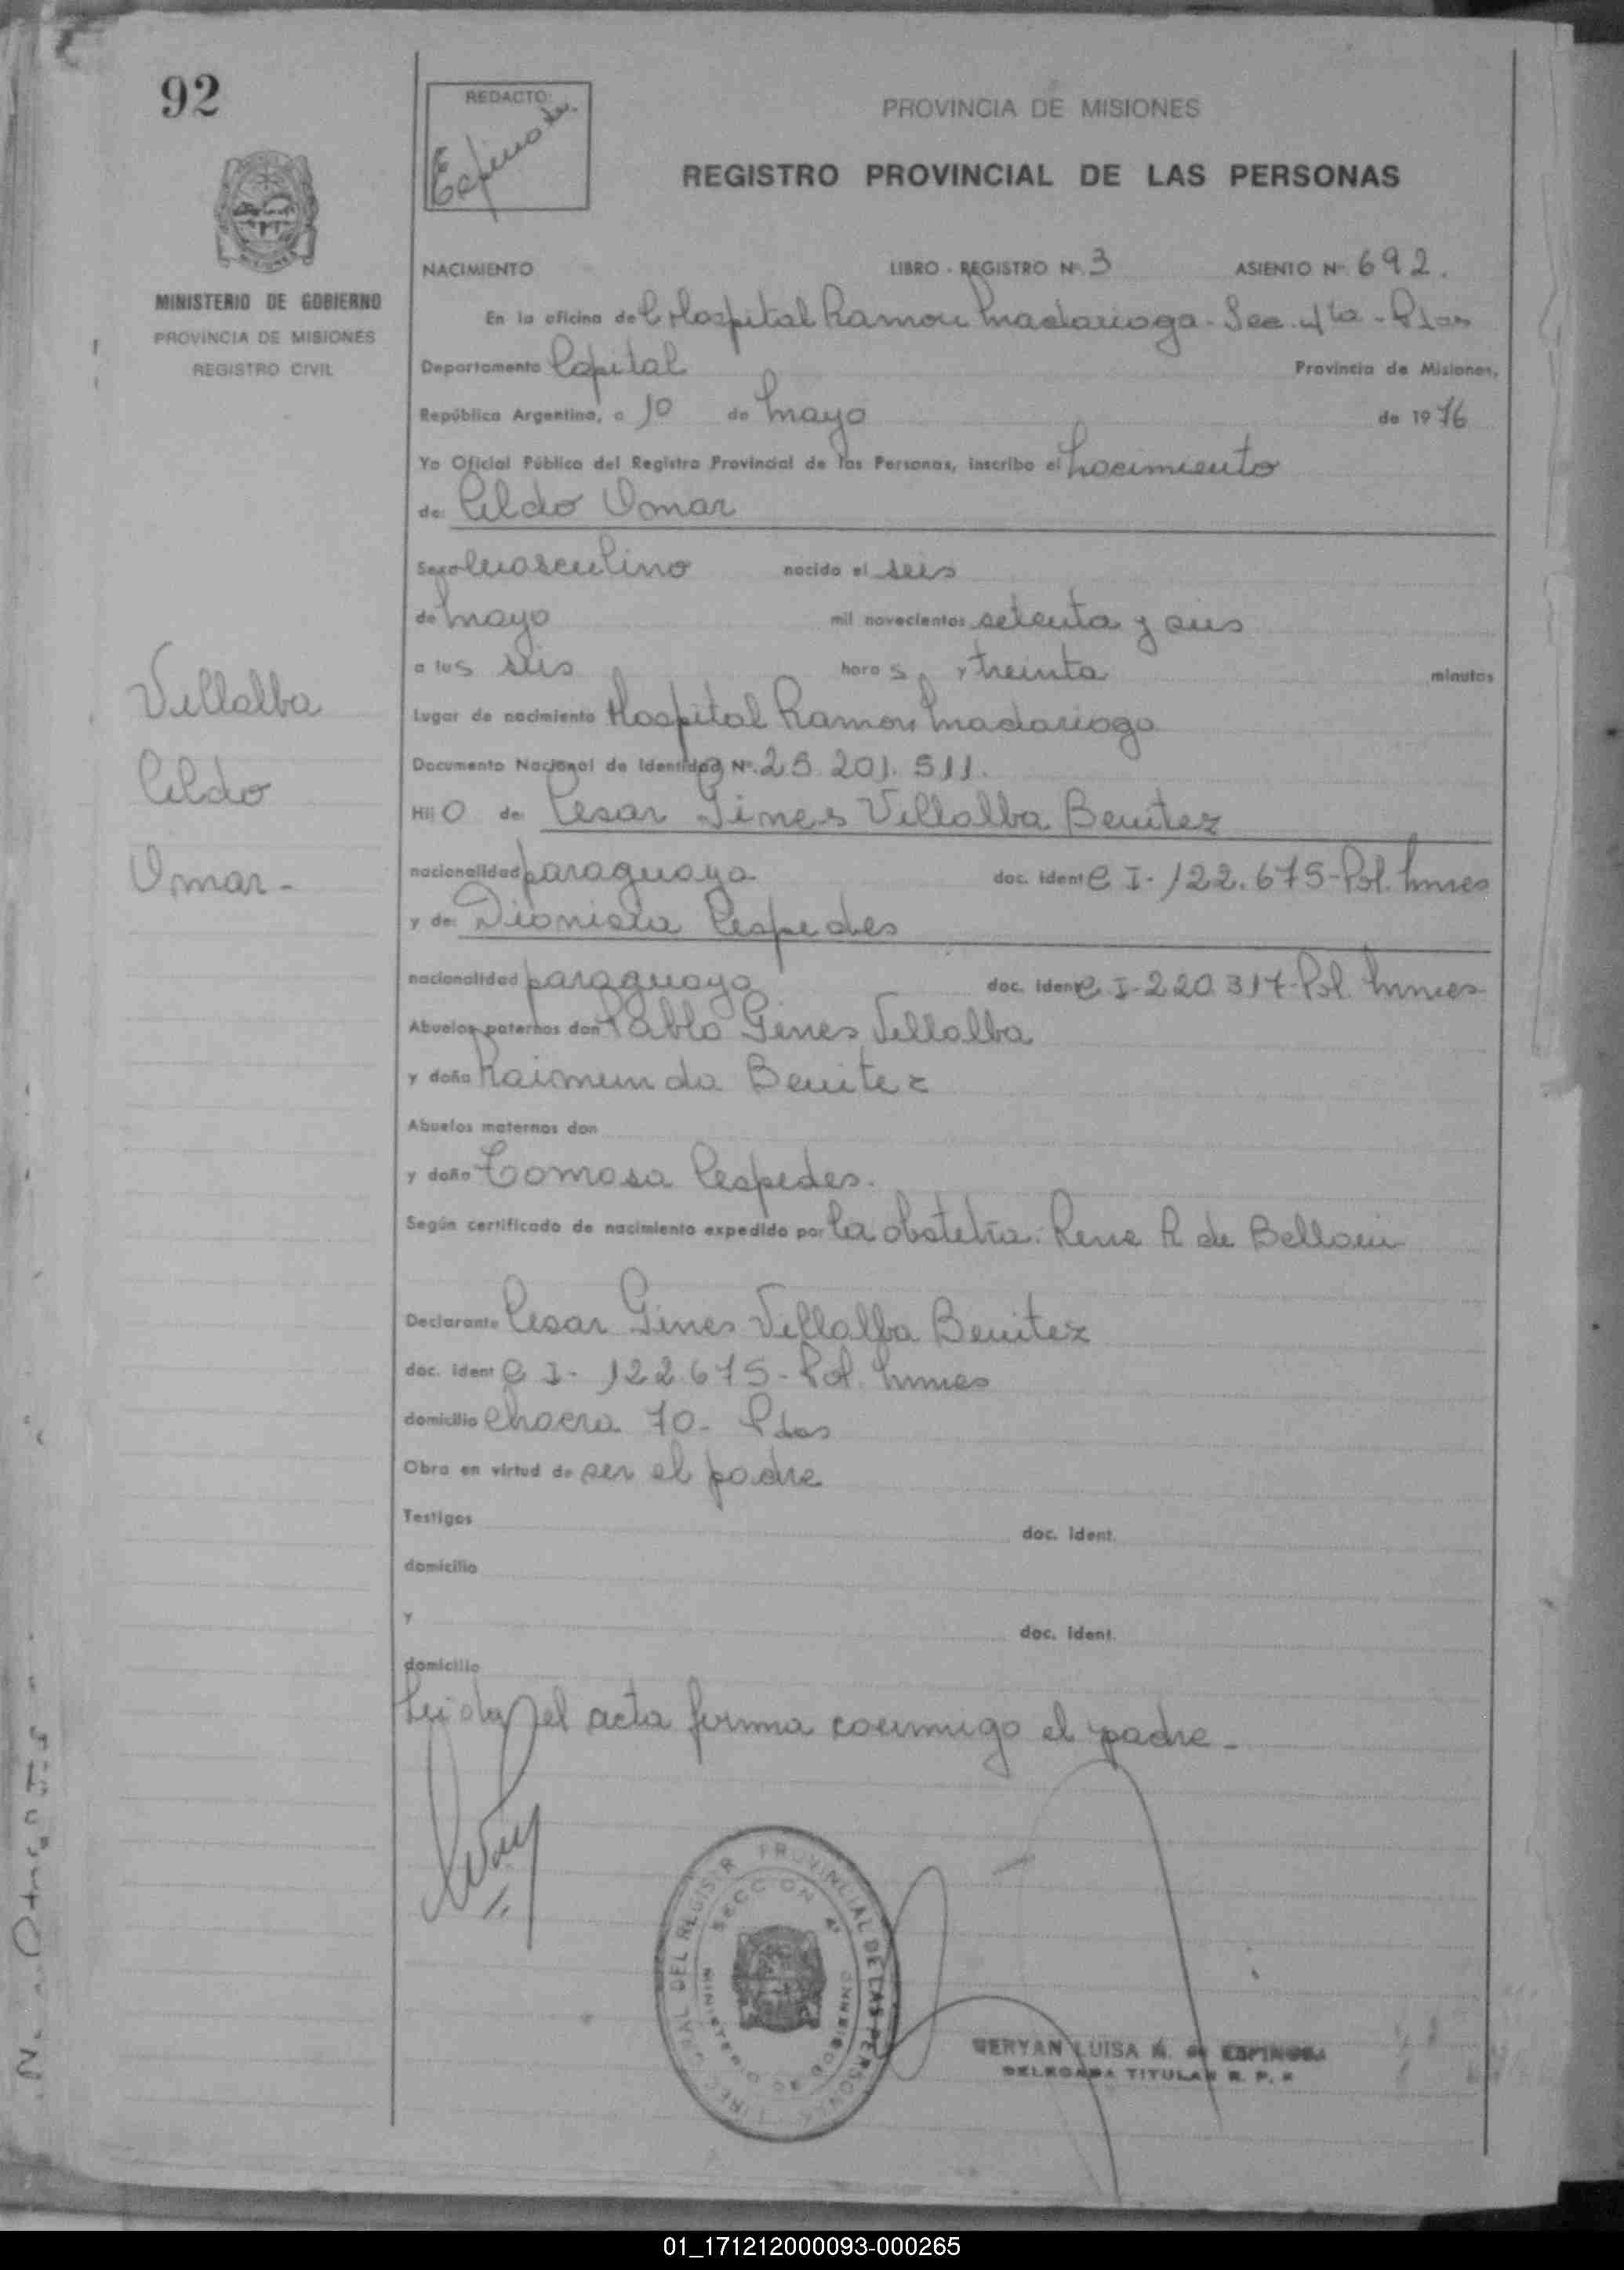 92
REDACTO:
Espinoza
PROVINCIA DE MISIONES
REGISTRO PROVINCIAL DE LAS PERSONAS
MINISTERIO DE GOBIERNO
PROVINCIA DE MISIONES
REGISTRO CIVIL
NACIMIENTO LIBRO - REGISTRO Nº 3 ASIENTO Nº 692.
En la oficina del Hospital Ramon Madariaga - Sec. 4ta - Pdas
Departamento Capital Provincia de Misiones,
República Argentina, a 10 de Mayo de 1976
Yo Oficial Público del Registro Provincial de las Personas, inscribo el Nacimiento
de: Celdo Omar
Sexo Masculino nacido el seis
de Mayo mil novecientos setenta y seis
a las seis horas y treinta minutos
Lugar de nacimiento Hospital Ramon Madariaga
Documento Nacional de Identidad Nº. 25.201.511.
Hijo de: Cesar Gines Villalba Benitez
nacionalidad paraguaya doc. ident C I - 122.675 - Pol. Mnes
y de: Dionisia Cespedes
nacionalidad paraguaya doc. ident C I - 220.317 - Pol. Mnes
Abuelos paternos don Pablo Gines Villalba
y doña Raimunda Benitez
Abuelos maternos don
y doña Tomasa Cespedes.
Según certificado de nacimiento expedido por la obstetra: Rene R de
Declarante Cesar Gines Villalba Benitez
doc. ident C I - 122.675 - Pol. Mnes
domicilio Chacra 70 - Pdas
Obra en virtud de ser el padre
Testigos doc. ident.
domicilio
y doc. ident.
domicilio
Leida el acta firma conmigo el padre -
Villalba
Celdo
Omar -
DEL REGISTR PROVINCIAL DE LAS PERSONAS
SECCION 4ª
LUISA DE ESPINOZA
DELEGADA TITULAR R. P. P
01_171212000093-000265